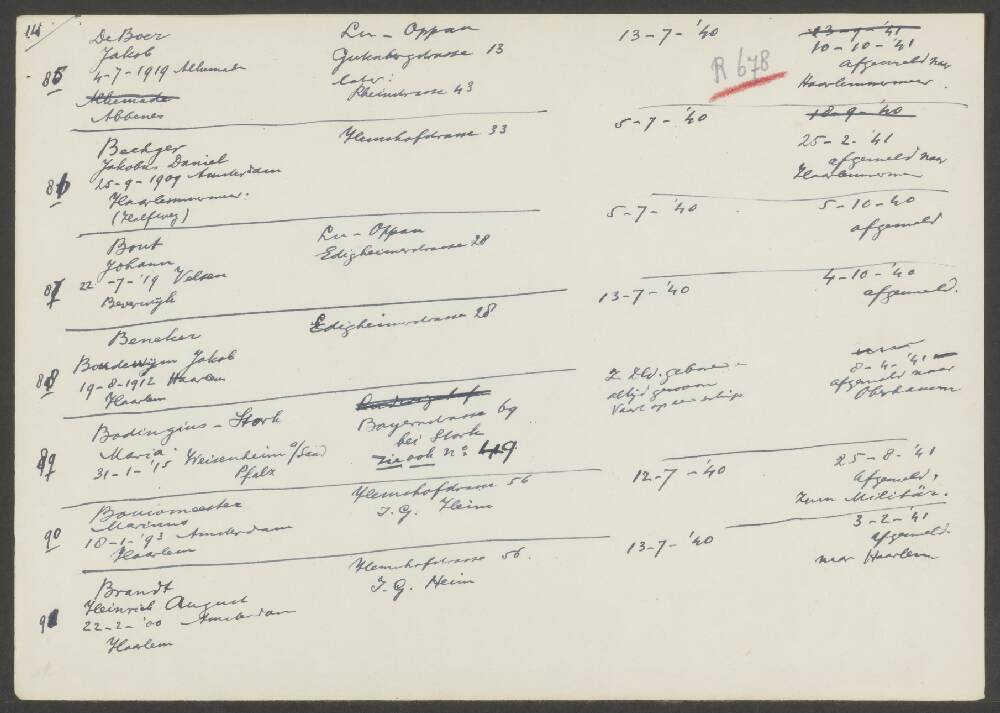 14
85
De Boer
Jakob
4-7-1919 Alkemade
Alkemade
Abbenes
Lu - Oppau
Gutenbergstrasse 13
later:
Rheinstrasse 43
13-7-'40
R 678
13-9-'41
10-10-'41
afgemeld naar
Haarlemmermeer.
86
Bechger
Jakobus Daniel
25-9-1909 Amsterdam
Haarlemmermeer.
(Halfweg)
Hemshofstrasse 33
5-7-'40
18-9-'40
25-2-'41
afgemeld naar
Haarlemmermeer
87
Bout
Johann
22-7-'19 Velsen
Beverwijk
Lu - Oppau
Edigheimerstrasse 28
5-7-'40
5-10-40
afgemeld
88
Beneker
Boudewijn Jakob
19-8-1912 Haarlem
Haarlem
Edigheimerstrasse 28
13-7-'40
4-10-'40
afgemeld.
89
Bodingius - Stork
Maria
31-1-'15 Weisenheim a/Sand
Pfalz
Ludwigshafen
Bayernstrasse 69
bei Stork
zie ook no. 49.
Z. Dld. geboren
altijd gewoon
Vaart op een schip
8-4-'41
afgemeld naar
Oberhausen
90
Bouwmeester
Marinus
18-1-'93 Amsterdam
Haarlem
Hemshofstrasse 56
I.G. Heim
12-7-'40
25-8-'41
Afgemeld,
Zum Militär.
91
Brandt
Heinrich August
22-2-'00 Amsterdam
Haarlem
Hemshofstrasse 56.
I.G. Heim
13-7-'40
3-2-'41
afgemeld.
naar Haarlem